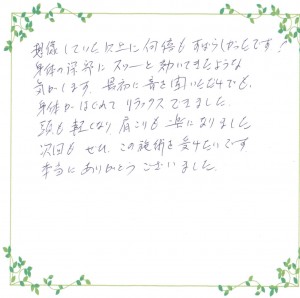 想像していた以上に何倍もすばらしかったです!
身体の深部にスーーと効いてきたような
気がします。最初に音を聞いただけでも、
身体がはじめてリラックスできました。
頭も軽くなり肩こりも楽になりました
次回もぜひ、この施術を受けたいです。
本当にありがとうございました。